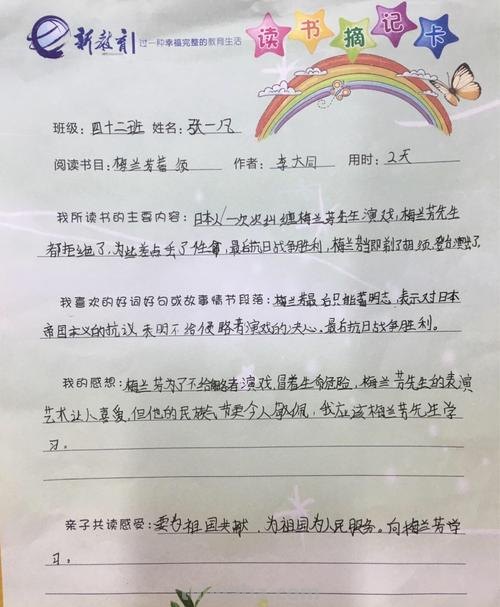 新教育 过一种幸福完整的教育生活
读书摘记卡
班级:四十二班 姓名:张一凡
阅读书目:梅兰芳蓄须 作者:李大同 用时:2天
我所读书的主要内容:日本人一次次纠缠梅兰芳先生演戏,梅兰芳先生
都拒绝了,为此差点丢了性命,最后抗日战争胜利,梅兰芳当即剃了胡须,登台演出了。
我喜欢的好词好句或故事情节段落:梅兰芳最后只能蓄须明志,表示对日本
帝国主义的抗议,表明不给侵略者演戏的决心。最后抗日战争胜利。
我的感想:梅兰芳为了不给侵略者演戏,冒着生命危险,梅兰芳先生的表演
艺术让人喜爱,但他的民族气节更令人敬佩,我应该梅兰芳先生学
习。
亲子共读感受:要为祖国贡献,为祖国为人民服务。向梅兰芳学
习。